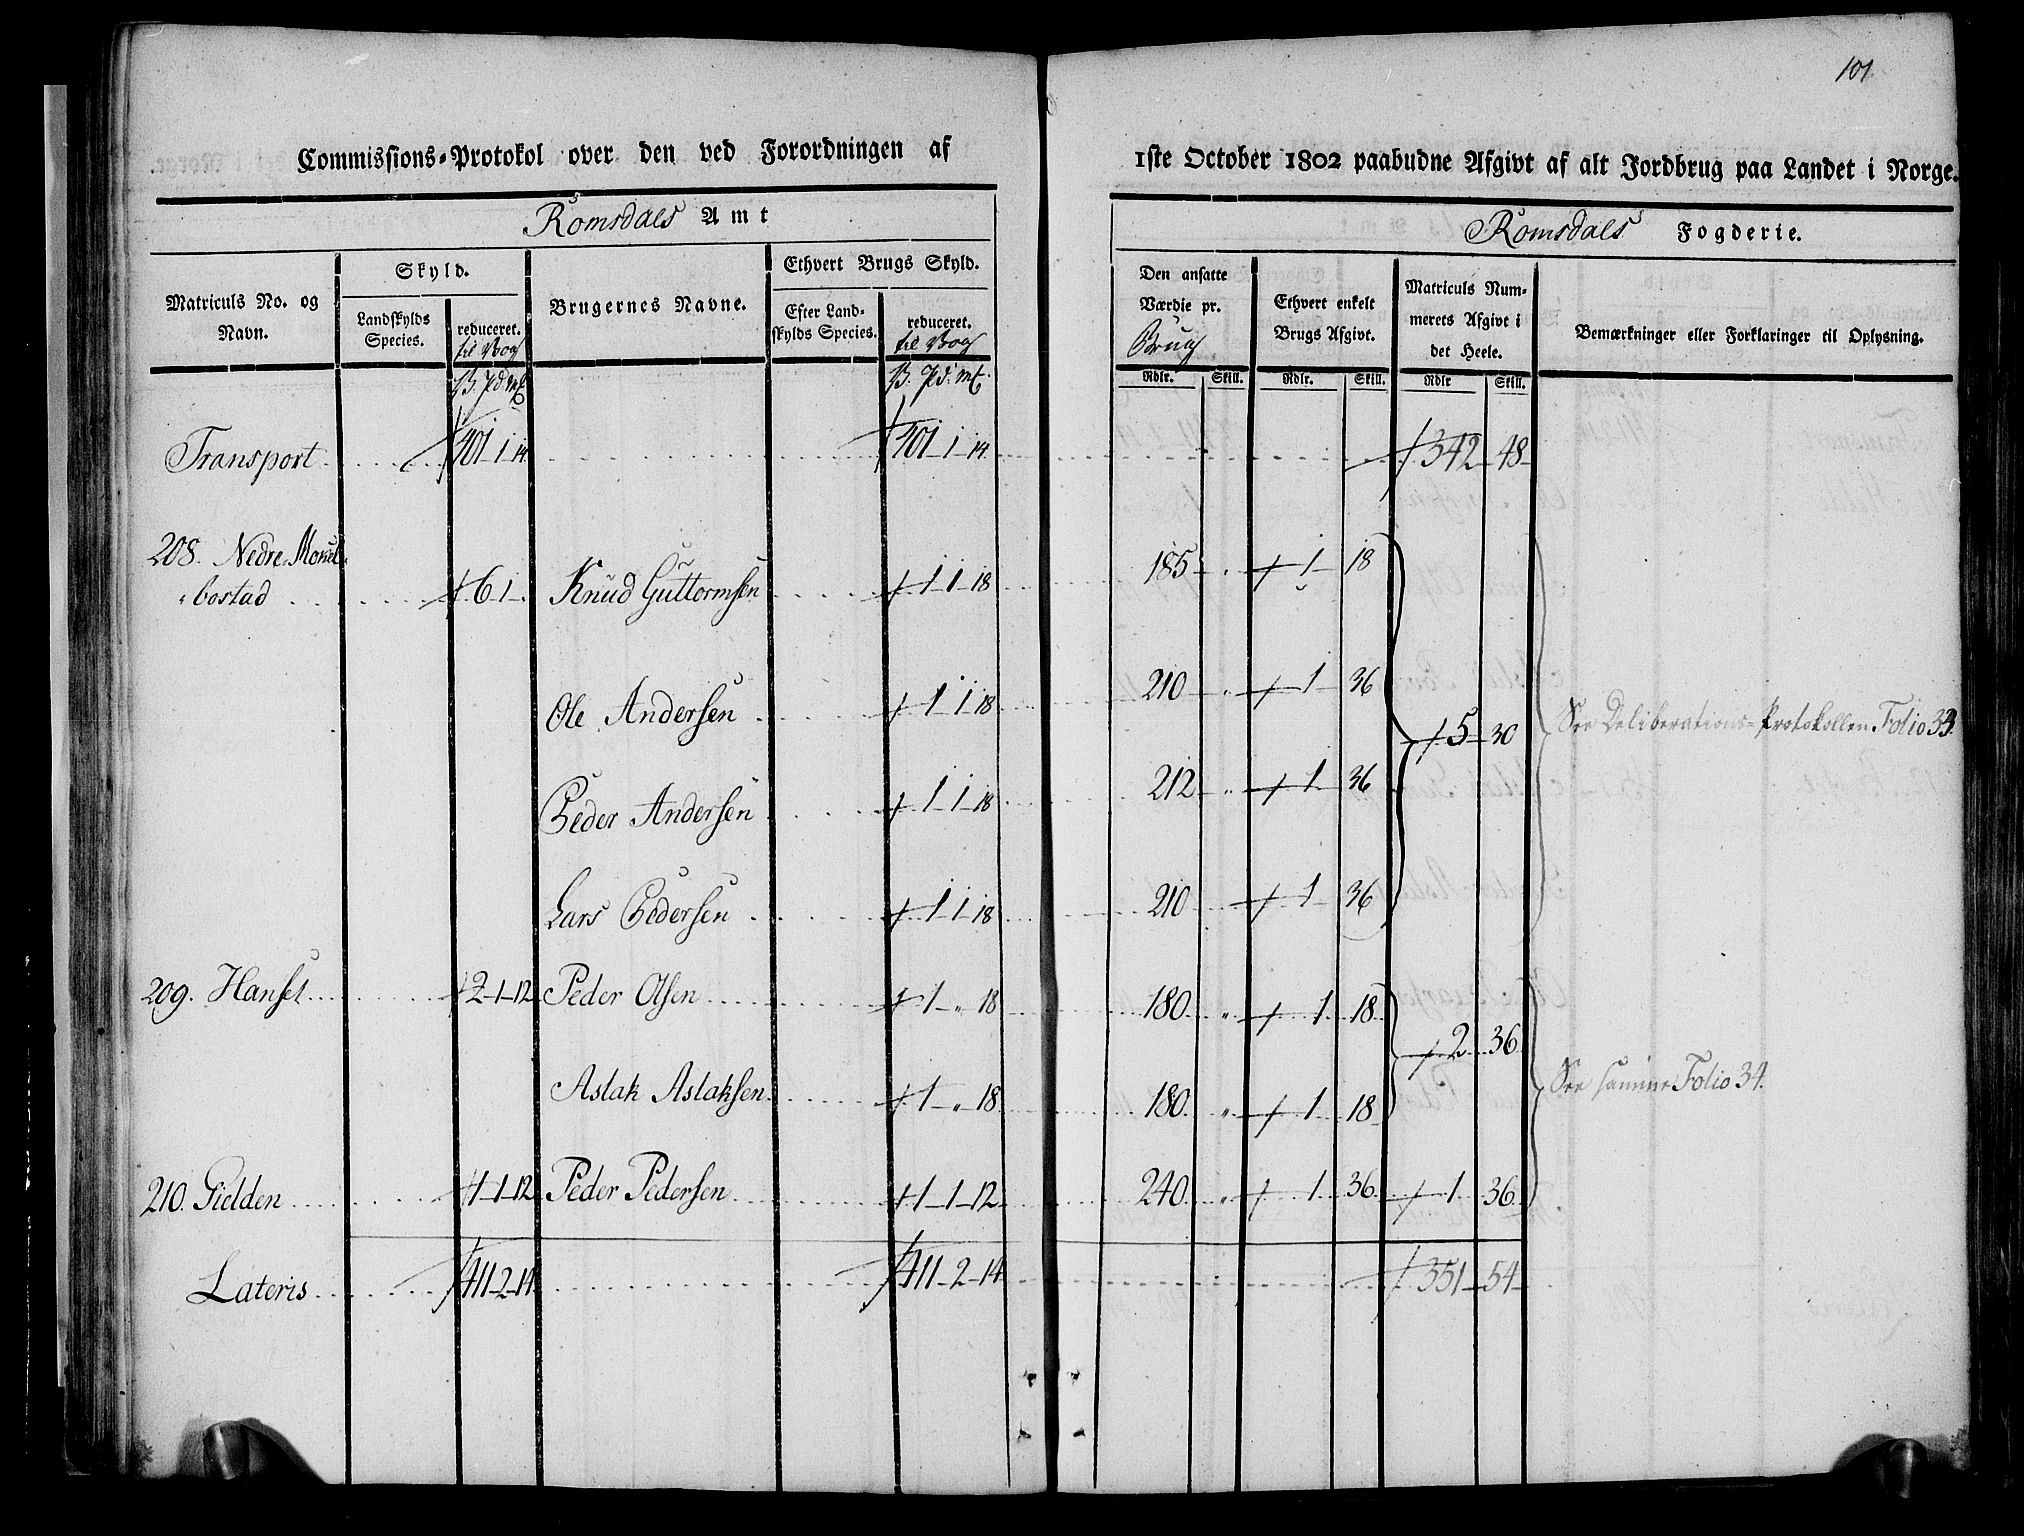 101
Commissions-Protokol over den ved Forordningen af
1ste October 1802 paabudne Afgivt af alt Jordbrug paa Landet i Norge.
Romsdals Amt
Romsdals Fogderie.
Matriculs No. og Navn.
Skyld.
Landskylds Species.
reduceret. til Vog
Brugernes Navne.
Ethvert Brugs Skyld.
Efter Landskylds Species.
reduceret. til Vog
Den ansatte Værdie pr. Brug
Ethvert enkelt Brugs Afgivt.
Matriculs Nummerets Afgivt i det Heele.
Bemærkninger eller Forklaringer til Oplysning.
Rdlr. Skill. Rdlr. Skill. Rdlr Skill.
Transport 401 - 1 - 14 401 - 1 - 14 342 - 48
208. Nedre
bostad 6 - 1 - Knud Guttormsen 1 - 1 - 18 185 " 1 - 18
Ole Andersen 1 - 1 - 18 210 " 1 - 36
5 - 30 See Deliberations-Protokollen Folio 33.
Peder Andersen 1 - 1 - 18 212 " 1 - 36
Lars Pedersen 1 - 1 - 18 210 1 - 36
209. Hanset 2 - 1 - 12 Peder Olsen 1 - " 18 180 " 1 18
2 36
Aslak Aslaksen 1 - " 18 180 " 1 18 See samme Folio 34.
210. Gielden 1 - 1 - 12 Peder Pedersen 1 - 1 - 12 240 " 1 36 1 36
Lateris 411 - 2 - 14 411 - 2 - 14 351 - 54